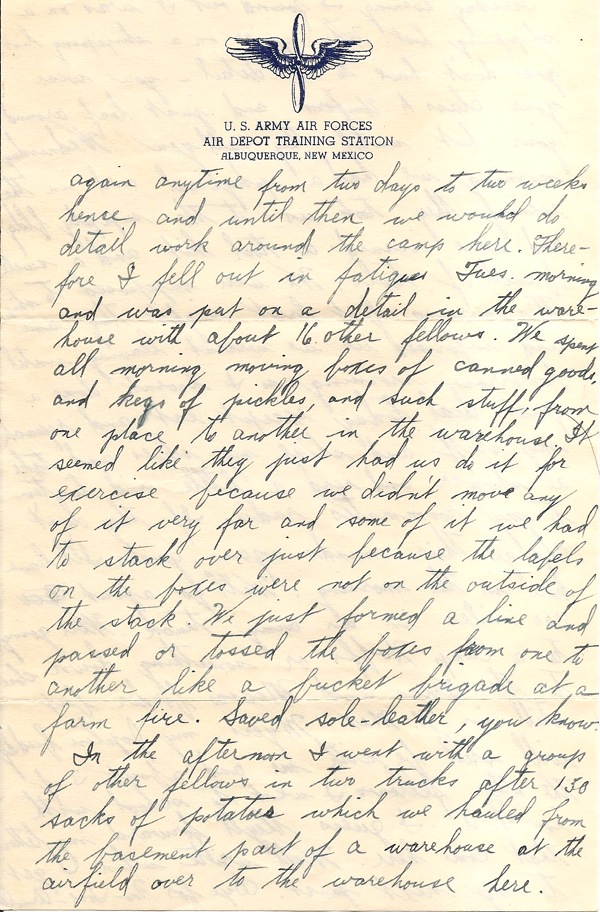 U. S. ARMY AIR FORCES
AIR DEPOT TRAINING STATION
ALBUQUERQUE, NEW MEXICO
again anytime from two days to two weeks
hense and until then we would do
detail work around the camp here. There-
fore I fell out in fatigues Tues. morning
and was put on a detail in the ware-
house with about 16 other fellows. We spent
all morning moving boxes of canned goods,
and kegs of pickles, and such stuff, from
one place to another in the warehouse. It
seemed like they just had us do it for
exercise because we didn't move any
of it very far and some of it we had
to stack over just because the labels
on the boxes were not on the outside of
the stack. We just formed a line and
passed or tossed the boxes from one to
another like a bucket brigade at a
farm fire. Saved sole-leather, you know.
In the afternoon I went with a group
of other fellows in two trucks after 130
sacks of potatoes which we hauled from
the basement part of a warehouse at the
airfield over to the warehouse here.